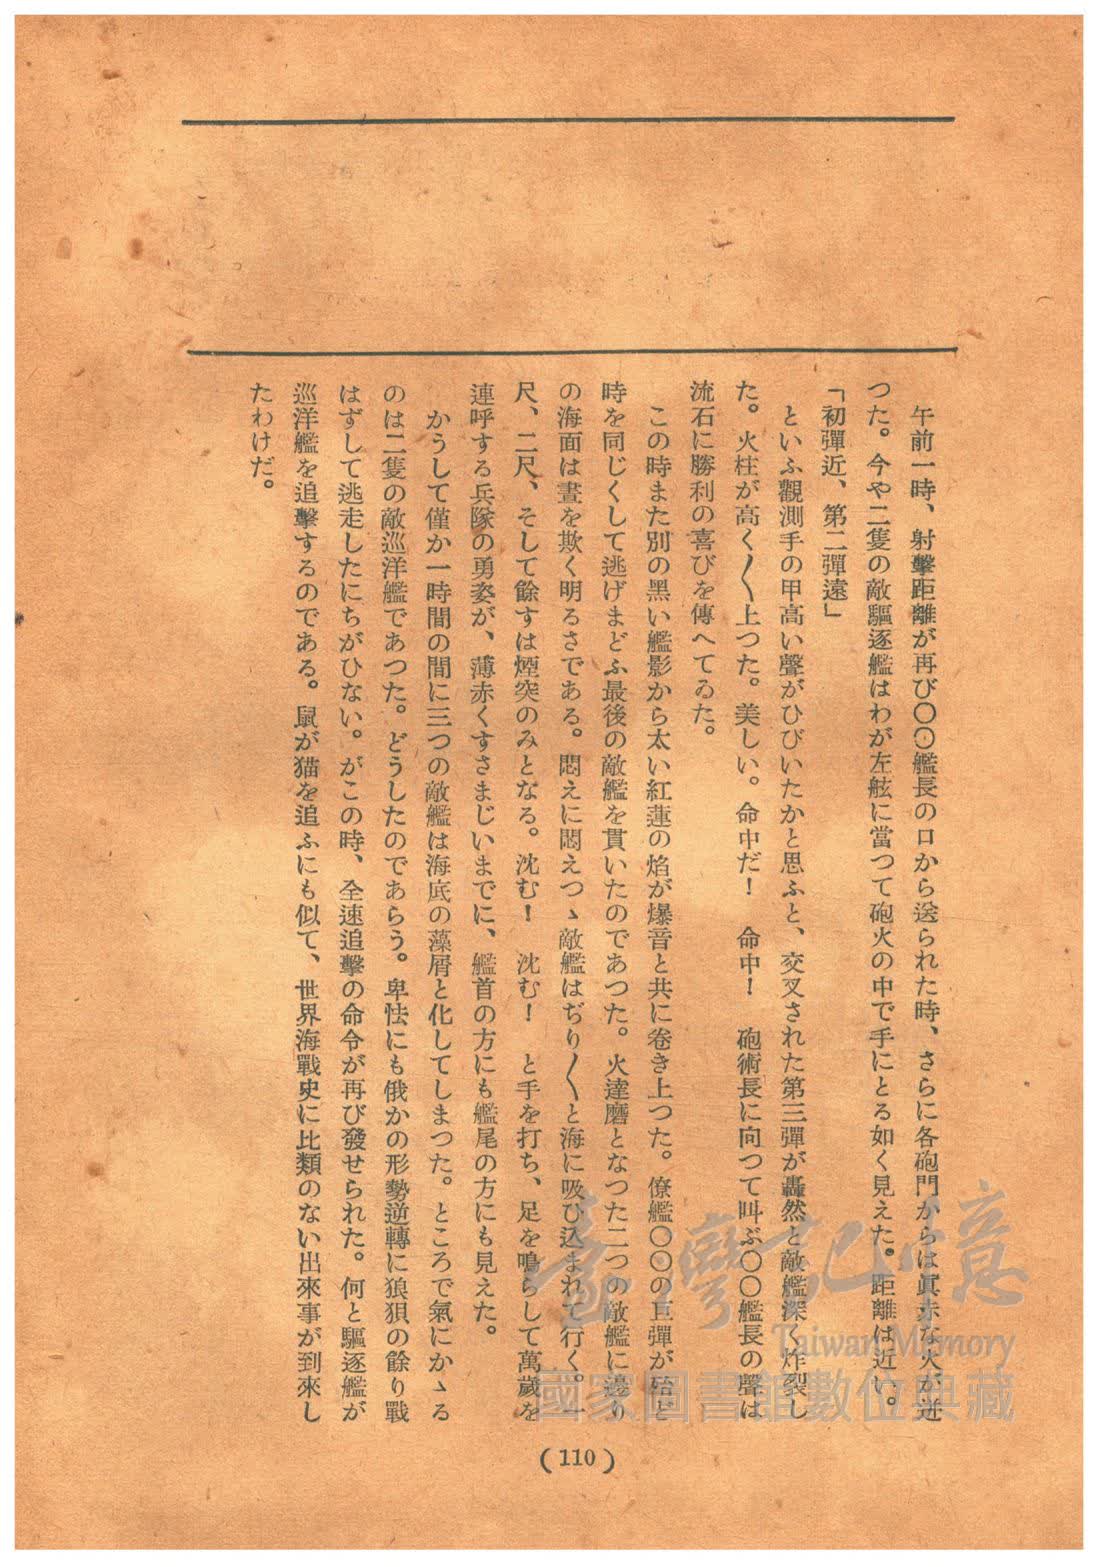 午前一時、射擊距離が再び〇〇艦長の口から送られた時、さらに各砲門からは眞赤な火が迸
つた。今や二隻の敵驅逐艦はわが左舷に當つて砲火の中で手にとる如く見えた。距離は近い。
「初彈近、第二彈遠」
といふ觀測手の甲高い聲がひびいたかと思ふと、交叉された第三彈が轟然と敵艦深く炸裂し
た。火柱が高く〱上つた。美しい。命中だ！　命中！　砲術長に向つて叫ぶ〇〇艦長の聲は
流石に勝利の喜びを傳へてゐた。
この時また別の黑い艦影から太い紅蓮の焰が爆音と共に卷き上つた。僚艦〇〇の巨彈が殆ど
時を同じくして逃げまどふ最後の敵艦を貫いたのであつた。火達磨となつた二つの敵艦に邊り
の海面は晝を欺く明るさである。悶えに悶えつゝ敵艦はぢり〱と海に吸ひ込まれて行く。一
尺、二尺、そして餘すは煙突のみとなる。沈む！　沈む！　と手を打ち、足を鳴らして萬歲を
連呼する兵隊の勇姿が、薄赤くすさまじいまでに、艦首の方にも艦尾の方にも見えた。
かうして僅か一時間の間に三つの敵艦は海底の藻屑と化してしまつた。ところで氣にかゝる
のは二隻の敵巡洋艦であつた。どうしたのであらう。卑怯にも俄かの形勢逆轉に狼狽の餘り戰
はずして逃走したにちがひない。がこの時、全速追擊の命令が再び發せられた。何と驅逐艦が
巡洋艦を追擊するのである。鼠が猫を追ふにも似て、世界海戰史に比類のない出來事が到來し
たわけだ。
(110)
臺灣記憶
Taiwan Memory
國家圖書館數位典藏